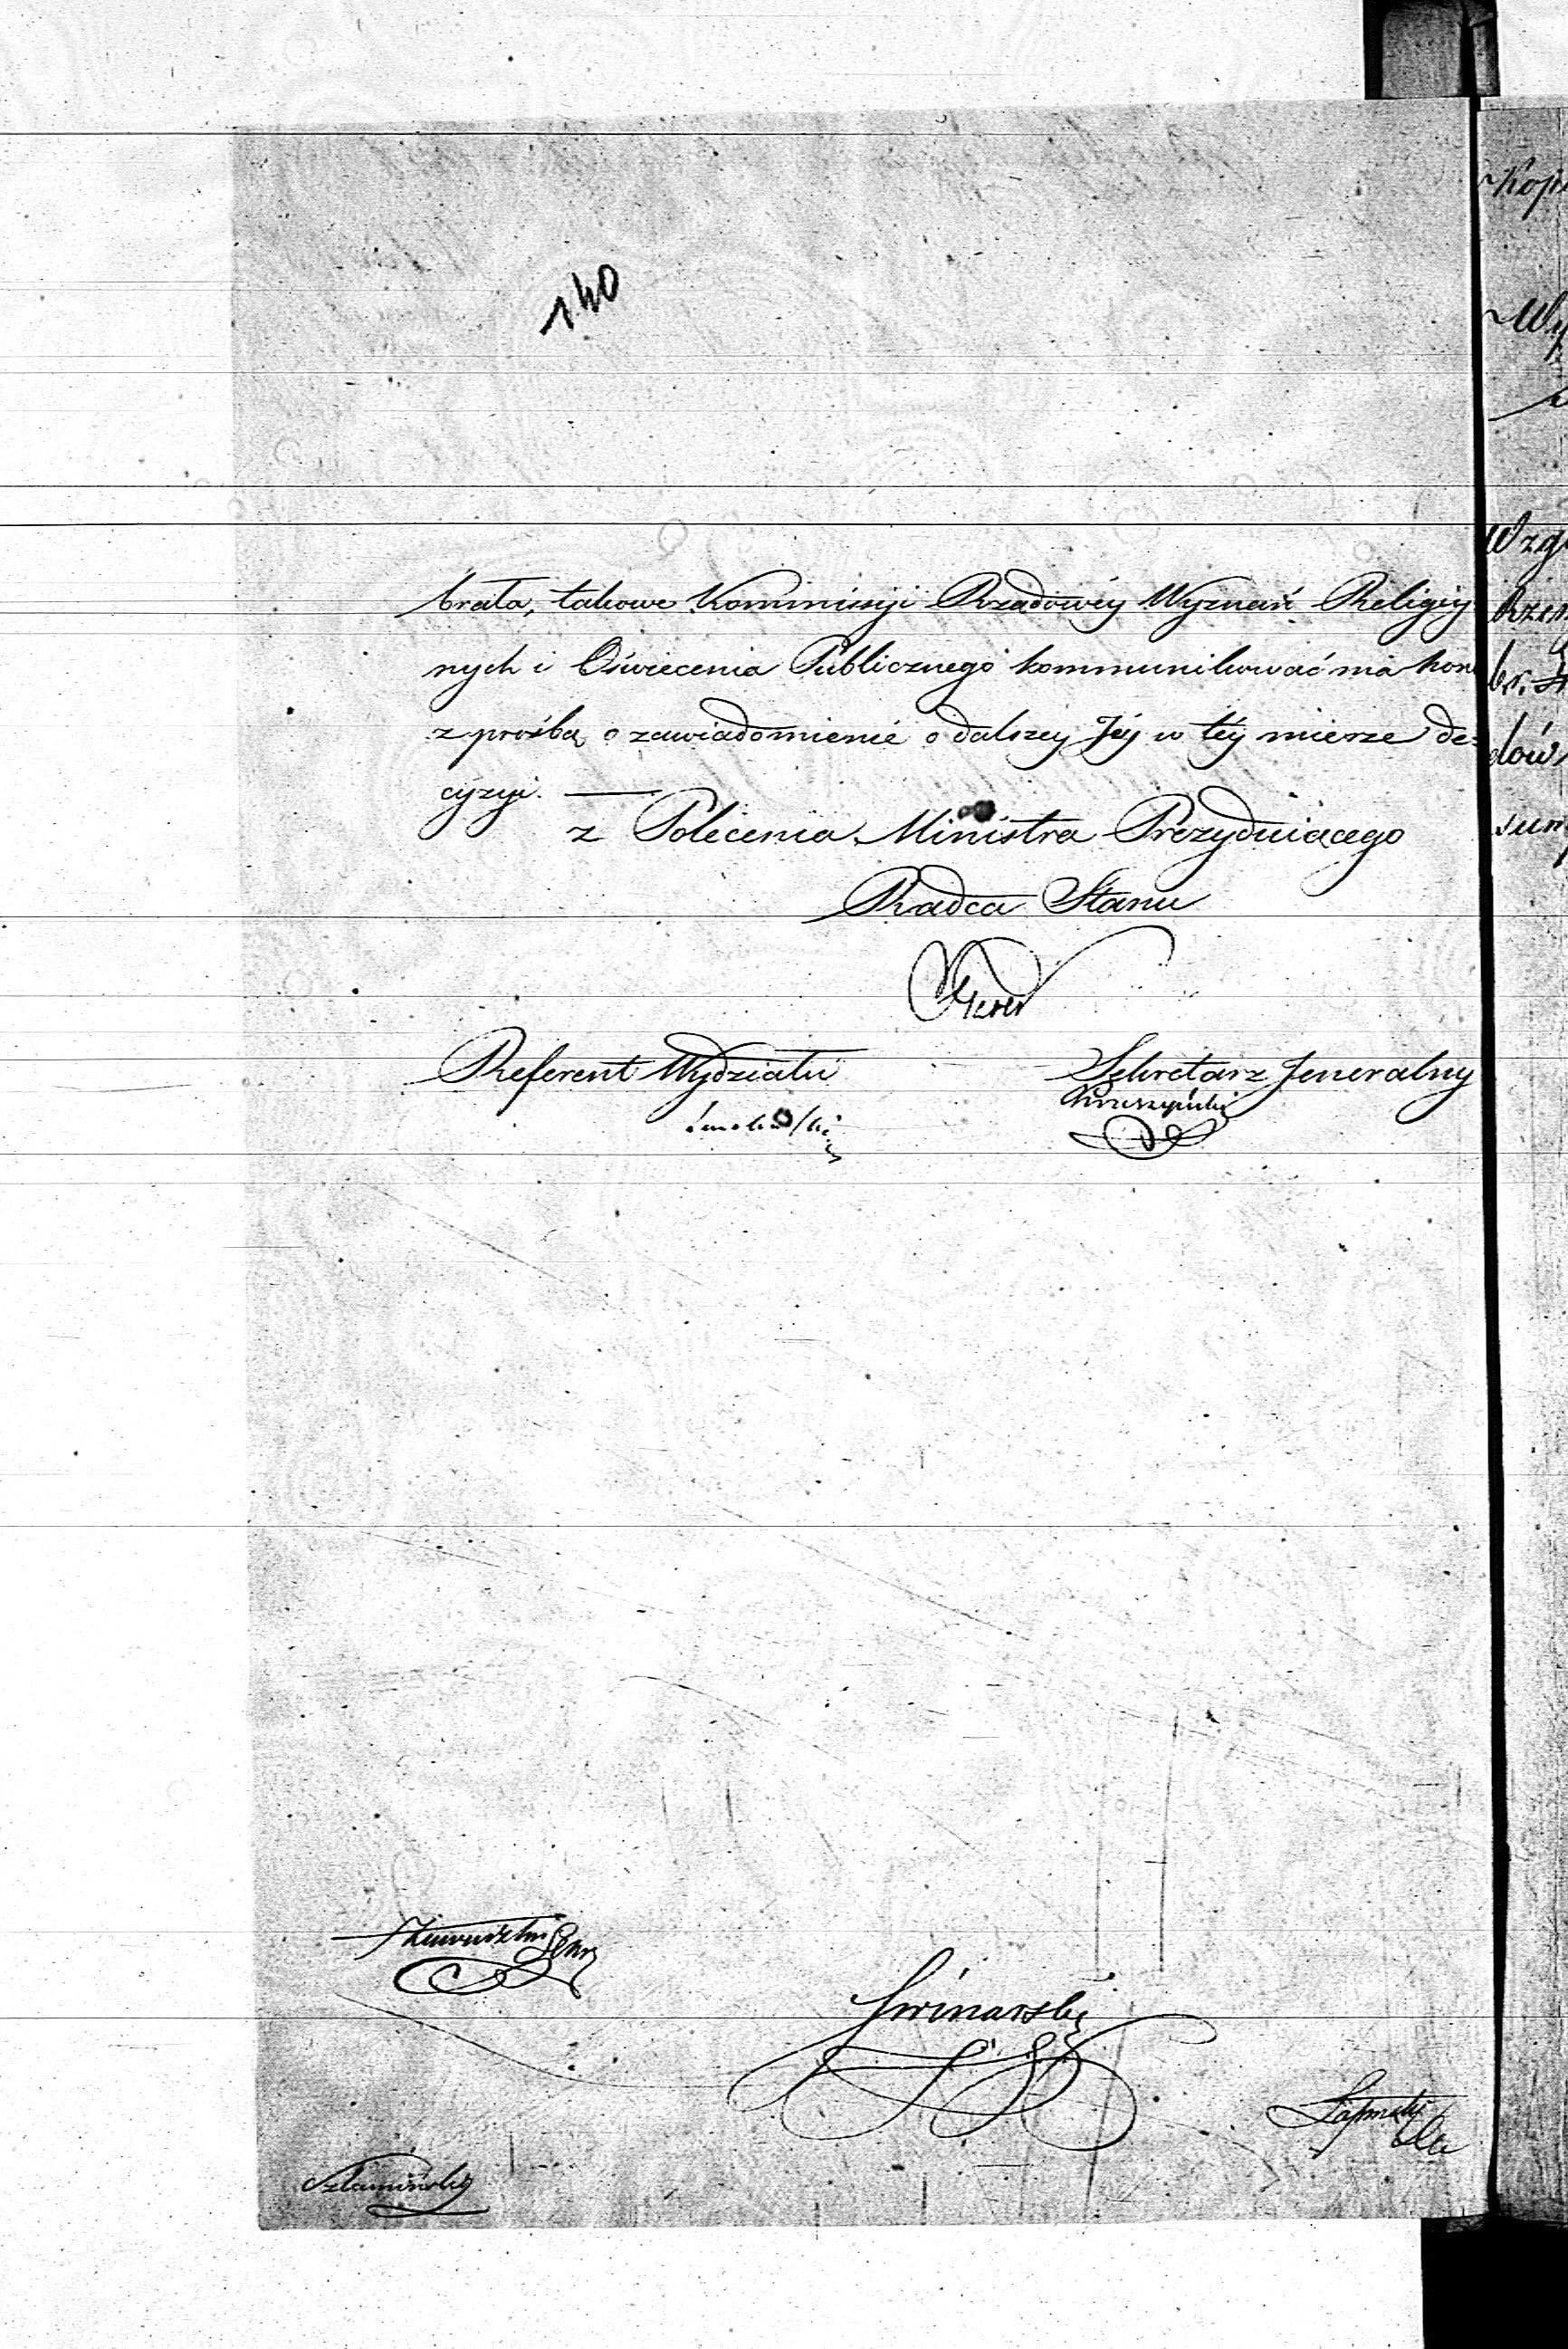 140
brała, takowe Kommissyi Rządowéy Wyznań Religiy
nych i Oświecenia Publicznego kommunikować ma hon
z prośbą o zawiadomienie o dalszey Jéy w téy mierze de-
cyzyi. —
z Polecenia Ministra Prezyduiącego
Radca Stanu
Referent Wydziału
Sekretarz Jeneralny
Kruszyński
Swinarski
Szlamiński
Kop
Wy
Wzg
Rzą
br.
dów
sum